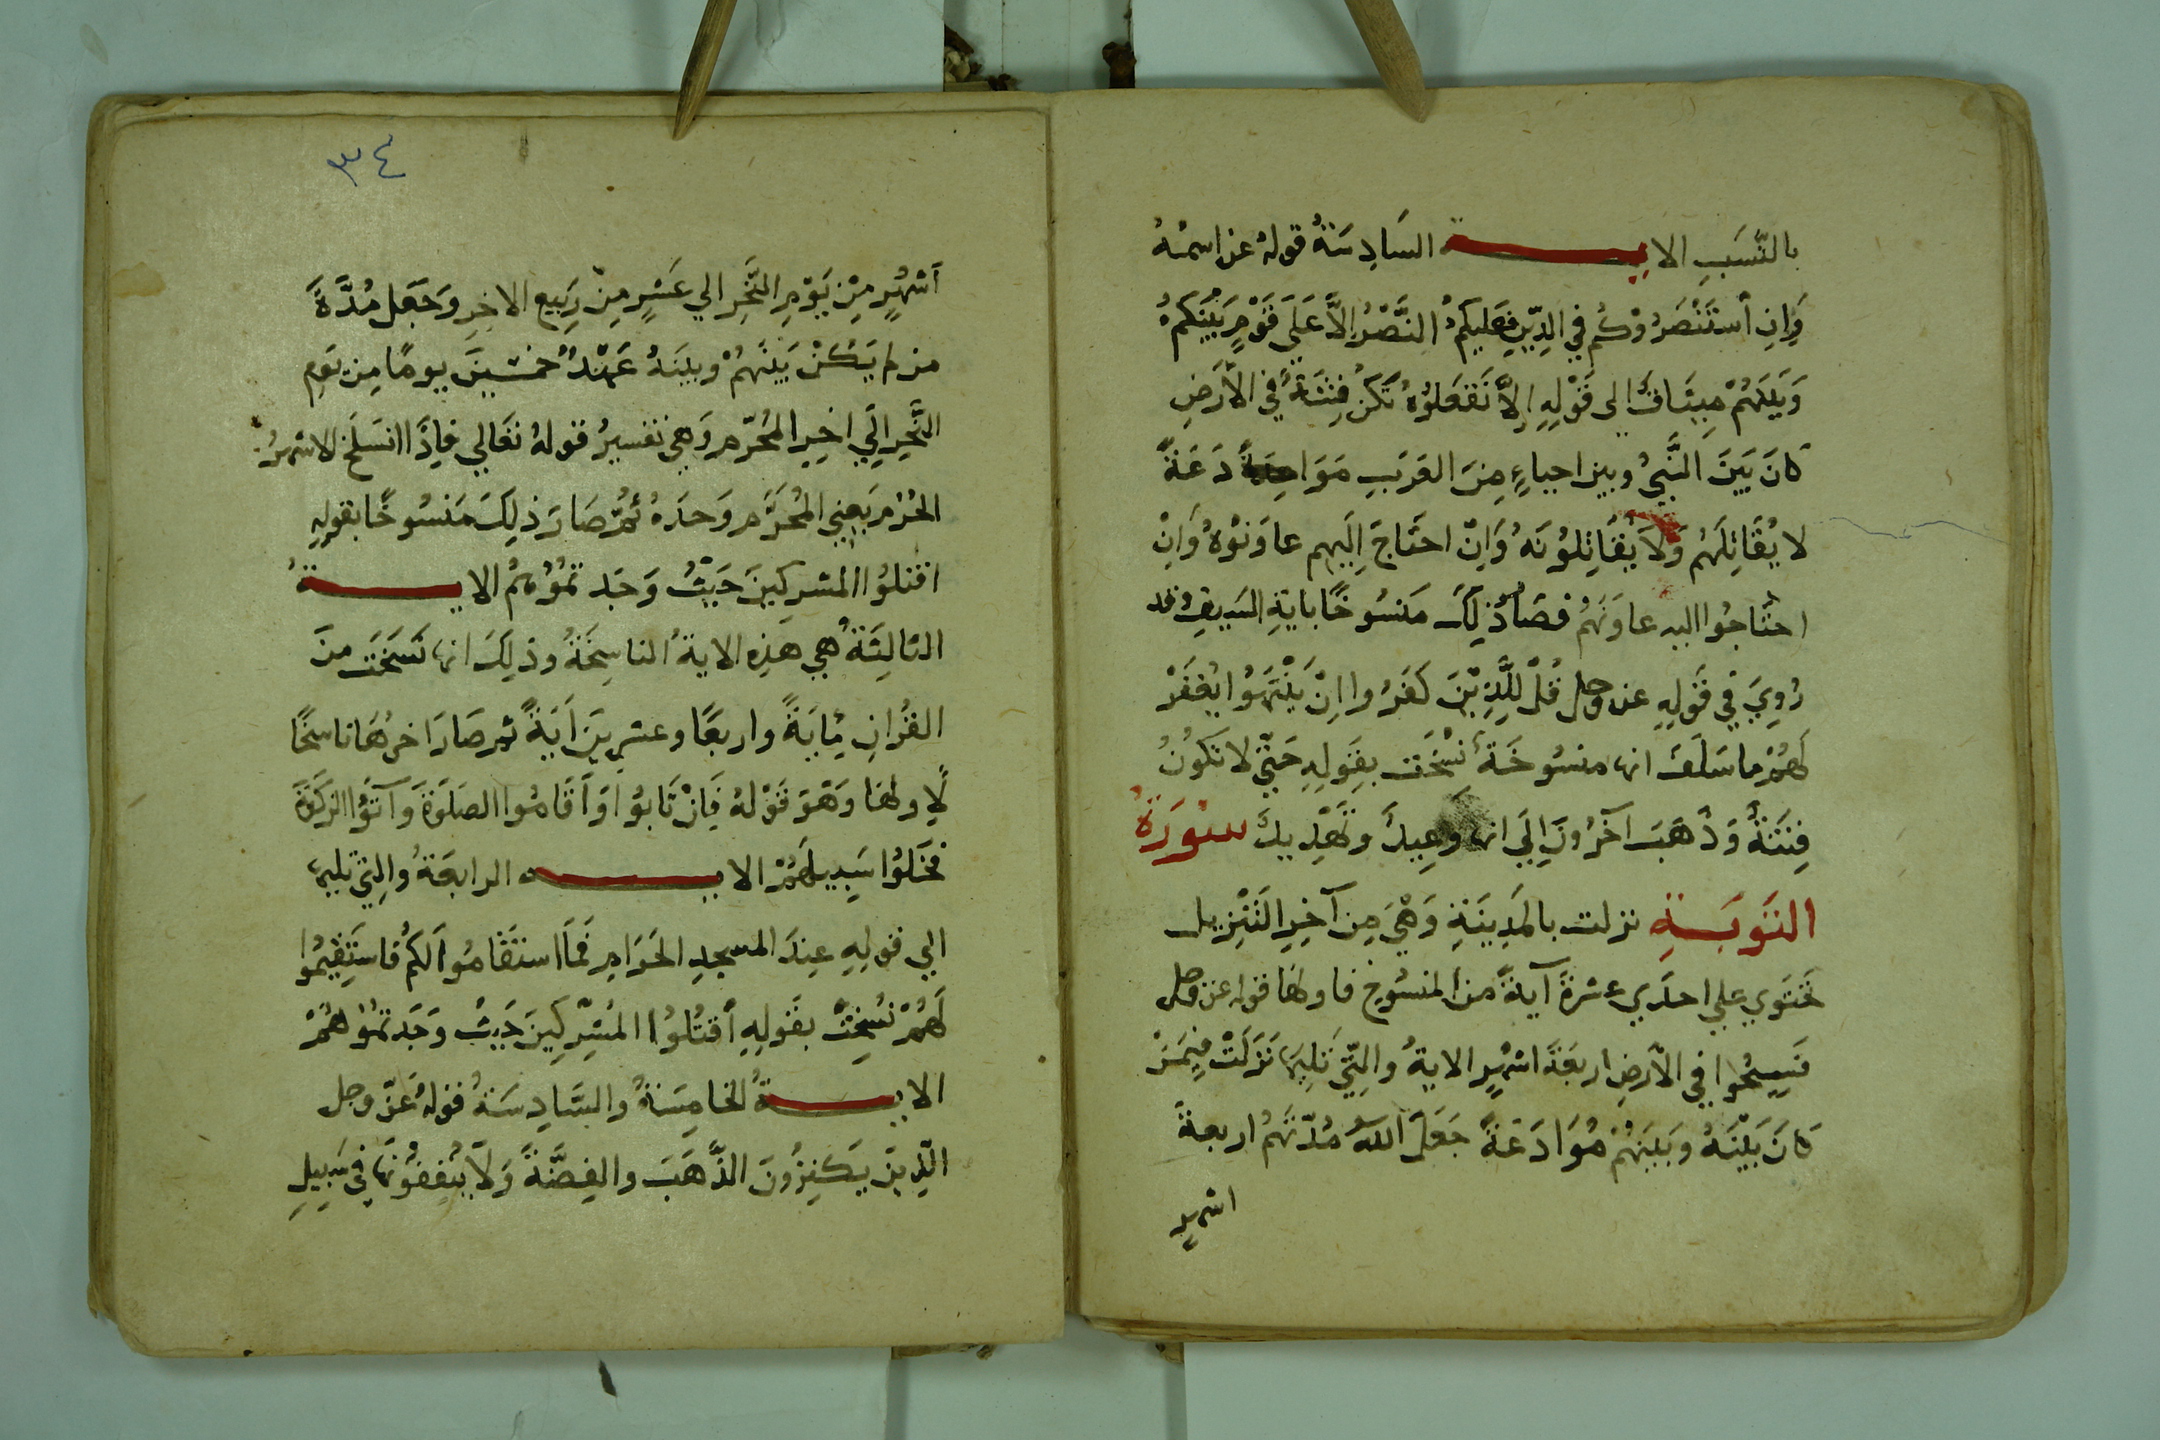 بالنَّسَبِ الايـــــة السَادِسَةُ قولهُ عز اسمُهُ
وَاِنِ اسْتَنْصَرُوْكُم في الدِّيْنِ فَعَليكمُ النَّصْرُ اِلاَّ عَلَى قَوْمٍ بَيْنَكُمْ
وَبَيْنَهُمْ مِيثَاقٌ الى قَوْلِهِ اِلاَّ تَفعَلوُهُ تَكُنْ فِتْنَةٌ في الاَرْضِ
كانَ بَيْنَ النَّبِيُ وبين احياءٍ مِنَ العَرَبِ مَوَاحِدَةً دَعَةً
لا يُقَاتِلَهُمْ وَلاَ يُقَاتِلوُنَهُ وَاِنْ احتَاجَ اِلَيهم عاوَنوْهُ وَاِنْ
احتَاجُوا اليه عاوَنَهُمْ فصَارَ ذلِكَ مَنسُوخًا بايَةِ السَيفِ وقد
رُوِيَ فِي قَولِهِ عز وجل قُلْ لِلَّذِيْنَ كَفَرُوا اِنْ يَنْتَهُوْا يُغفَرْ
لَهُمْ ما سَلَفَ انها منسُوخَةٌ نُسْخَت بِقَولِهِ حَتّي لا تكوُنُ
فِتنَةٌ وَذَهَبَ آخَرُونَ اِلَي انها وَعِيدٌ وتَهْدِيدٌ سُورَةُ
التَوبَـــةِ نزلت بالمَدِينَةِ وَهْيَ مِن آخِرِ التَنْزِيل
تَحْتَوي علي احدَي عشرةَ آيةً من المنسُوخِ فاولهَا قوله عز وجل
فَسِيحُوا في الاَرضِ اربعَةَ اشهُرٍ الايةُ والتِّي تَلِيهَا نَزَلَتْ فِيمَنْ
كانَ بَيْنَهُ وبَيْنَهُمْ مُوَادَعَةً جَعَلَ اللهُ مُدّتَهُمْ اربعةَ
اشهرٍ
٣٤
اَشْهُرٍ مِنْ يَوْمِ النَّحْرِ الي عَشْرٍ مِنْ رَبِيع الاخِرِ وَجَعَل مُدَّةَ
من لم يَكُنْ بَيْنَهُمْ وبينَهُ عَهْدٌ خَمْسِينَ يومًا مِن يَومِ
النَّحْرِ اِلَي اخِرِ المُحَرّمِ وَهي تفسيرُ قولهُ تعَالي فاِذَا انسَلَخ الاشهرُ
الحُرُمُ يَعني المُحَرَّم وَحدَهُ ثُمَّ صَارَ ذلِكَ مَنسُوخًا بقولِهِ
اقتلوُا المشرِكِينَ حَيْثُ وَجَد تمُوْهُمْ الايـــــةُ
الثالِثَةُ هي هذِهِ الايةُ الناسِخَةُ وذلِكَ انها نَسَخَت منَ
القُرانِ مِايَةً واربعًا وعشرِينَ اَيَةً ثم صَارَ اخرُهَا ناسخًا
لاِولهَا وَهْوَ قَوْلهُ فَاِنْ تَابوُا وَاَقَامُوا الصَلَوةَ وَآتَوُا الزكَوةَ
فخَلّوُا سَبِيلَهُمْ الايـــــة الرابعَةُ والتِي تليها
الي قولِهِ عِندَ المسجدِ الحَرَامِ فَمَا استَقَامُوا لَكُم فاستَقِيمُوا
لَهُمْ نُسْخِتْ بقَولِهِ اُقتُلوُا المُشرِكِينَ حَيثُ وَجَدتمُوْهُمْ
الايـــــةُ الخامِسَةُ والسَّادِسَةُ قولهُ عَزّ وجل
الّذِينَ يَكنِزُونَ الذَّهَبَ والفِضَّةَ وَلاَ يُنْفِقُوْنَهَا في سَبِيلِ